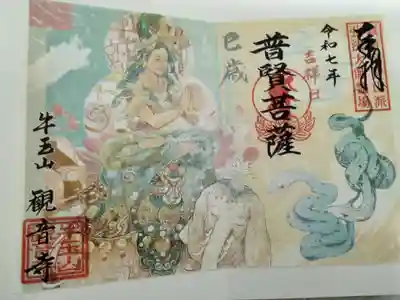 奉拝
令和七年
吉祥日
普賢菩薩
巳歳
牛玉山
觀音寺